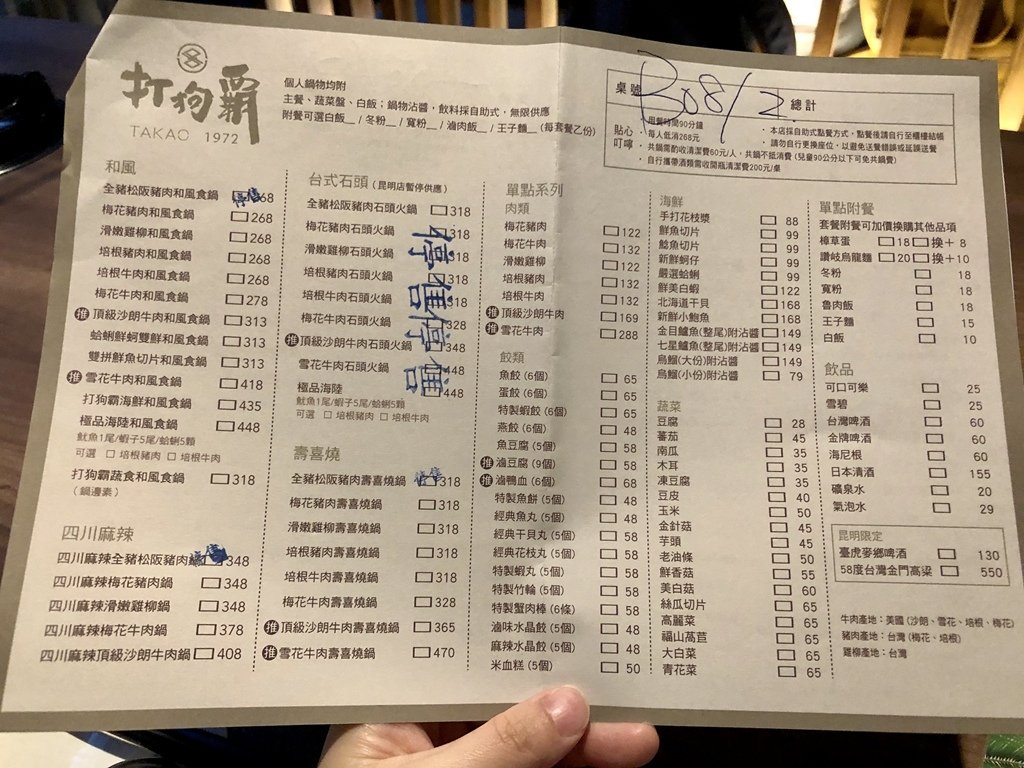 打狗霸
TAKAO 1972
個人鍋物均附
主餐、蔬菜盤、白飯；鍋物沾醬，飲料採自助式，無限供應
附餐可選白飯__ / 冬粉__ / 寬粉__ / 滷肉飯__ / 王子麵__ (每套餐乙份)
桌號 B08/2 總計
貼心叮嚀
・用餐時間90分鐘
・每人低消268元
・共鍋需酌收清潔費60元/人，共鍋不抵消費 (兒童90公分以下可免共鍋費)
・自行攜帶酒類需收開瓶清潔費200元/桌
・本店採自助式點餐方式，點餐後請自行至櫃檯結帳
請勿自行更換座位，以避免送餐錯誤或延誤送餐
和風
全豬松阪豬肉和風食鍋 停售 268
梅花豬肉和風食鍋 268
滑嫩雞柳和風食鍋 268
培根豬肉和風食鍋 268
培根牛肉和風食鍋 268
梅花牛肉和風食鍋 278
推 頂級沙朗牛肉和風食鍋 313
蛤蜊鮮蚵雙鮮和風食鍋 313
雙拼鮮魚切片和風食鍋 313
推 雪花牛肉和風食鍋 418
打狗霸海鮮和風食鍋 435
極品海陸和風食鍋 448
魷魚1尾/蝦子5尾/蛤蜊5顆
可選 □ 培根豬肉 □ 培根牛肉
打狗霸蔬食和風食鍋 318
(鍋邊素)
四川麻辣
四川麻辣全豬松阪豬肉 停售 348
四川麻辣梅花豬肉鍋 348
四川麻辣滑嫩雞柳鍋 348
四川麻辣梅花牛肉鍋 378
四川麻辣頂級沙朗牛肉鍋 408
台式石頭 (昆明店暫停供應)
全豬松阪豬肉石頭火鍋 318
梅花豬肉石頭火鍋 318
滑嫩雞柳石頭火鍋 318
培根豬肉石頭火鍋 318
培根牛肉石頭火鍋 318
梅花牛肉石頭火鍋 328
推 頂級沙朗牛肉石頭火鍋 348
雪花牛肉石頭火鍋 448
極品海陸 448
魷魚1尾/蝦子5尾/蛤蜊5顆
可選 □ 培根豬肉 □ 培根牛肉
停售停售
壽喜燒
全豬松阪豬肉壽喜燒鍋 停售 318
梅花豬肉壽喜燒鍋 318
滑嫩雞柳壽喜燒鍋 318
培根豬肉壽喜燒鍋 318
培根牛肉壽喜燒鍋 318
梅花牛肉壽喜燒鍋 328
推 頂級沙朗牛肉壽喜燒鍋 365
推 雪花牛肉壽喜燒鍋 470
單點系列
肉類
梅花豬肉 122
梅花牛肉 132
滑嫩雞柳 122
培根豬肉 132
培根牛肉 132
推 頂級沙朗牛肉 169
推 雪花牛肉 288
餃類
魚餃 (6個) 65
蛋餃 (6個) 65
特製蝦餃 (6個) 65
燕餃 (6個) 58
魚豆腐 (5個) 58
推 滷豆腐 (9個) 58
推 滷鴨血 (6個) 68
特製魚餅 (5個) 48
經典魚丸 (5個) 48
經典干貝丸 (5個) 58
經典花枝丸 (5個) 58
特製蝦丸 (5個) 58
特製竹輪 (5個) 58
特製蟹肉棒 (6條) 58
滷味水晶餃 (5個) 48
麻辣水晶餃 (5個) 58
米血糕 (5個) 50
海鮮
手打花枝漿 88
鮮魚切片 99
鯰魚切片 99
新鮮蚵仔 99
嚴選蛤蜊 99
鮮美白蝦 122
北海道干貝 168
新鮮小鮑魚 168
金目鱸魚(整尾)附沾醬 149
七星鱸魚(整尾)附沾醬 149
烏鰡(大份)附沾醬 149
烏鰡(小份)附沾醬 79
蔬菜
豆腐 28
蕃茄 45
南瓜 35
木耳 35
凍豆腐 35
豆皮 40
玉米 50
金針菇 45
芋頭 45
老油條 50
鮮香菇 55
美白菇 60
絲瓜切片 65
高麗菜 65
福山萵苣 65
大白菜 65
青花菜 65
單點附餐
套餐附餐可加價換購其他品項
樟草蛋 18 換+ 8
讚岐烏龍麵 20 換+10
冬粉 18
寬粉 18
魯肉飯 18
王子麵 15
白飯 10
飲品
可口可樂 25
雪碧 25
台灣啤酒 60
金牌啤酒 60
海尼根 60
日本清酒 155
礦泉水 20
氣泡水 29
昆明限定
臺虎麥鄉啤酒 130
58度台灣金門高粱 550
牛肉產地：美國 (沙朗、雪花、培根、梅花)
豬肉產地：台灣 (梅花、培根)
雞柳產地：台灣